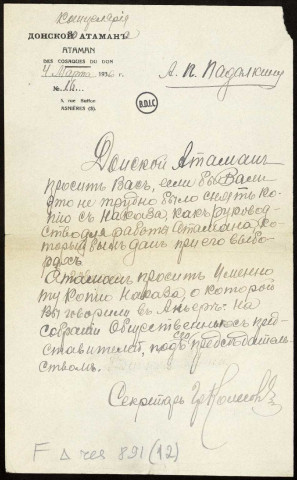 Канцелярія
ДОНСКОЙ АТАМАНЪ
ATAMAN
DES COSAQUES DU DON
4 Марта 193
№
3, rue Buffor
ASNIÈRES (S)
А. П. Падалкину
B.D.I.C
Донской Атаманъ
проситъ Васъ, если бы Вамъ
это не трудно было снять ко-
пію съ Наказа, какъ руковод-
ство для работъ Атамана, ко-
торый былъ данъ при его выбо-
рахъ.
Атаманъ проситъ именно
ту копію Наказа, о которой
Вы говорили въ Аньеръ: на
собраніи Общественныхъ пред-
ставителей, подъ его председатель-
ствомъ.
Секретарь
F Δ rés 891 (12)